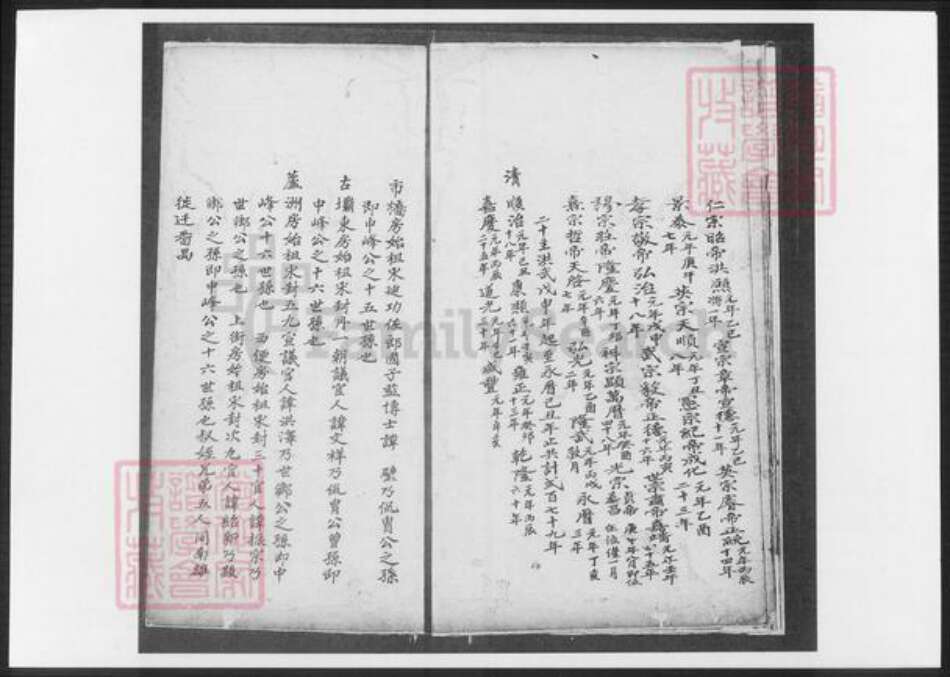 仁宗昭帝洪熙元年乙巳將一年宣宗章帝宣德元年乙巳十一年英宗睿帝正統元年丙辰十四年
景泰元年庚午七年英宗天順元年丁丑八年憲宗紀帝成化元年乙酉二十三年
孝宗敬帝弘治元年戊申十八年武宗毅帝正德元年丙寅十六年世宗肅帝嘉靖元年壬午四十五年
穆宗莊帝隆慶六年神宗顯萬曆元年癸酉四十八年光宗貞帝泰昌在位僅一月
熹宗哲帝天啓七年弘光元年乙酉二年隆武元年丙戌數月永曆元年丁亥三年
二十主洪武戊申年起至永曆己丑年止共計弍百七十九年
清
順治十八年康熙六十一年雍正元年癸卯十三年乾隆元年丙辰六十年
嘉慶元年丙辰二十五年道光元年辛巳咸豐元年辛亥
市橋房始祖宋廸功佐郎國子監博士諱 璧乃侃胄公之孫
即申峰公之十五世孫也
古壩東房始祖宋封丹 朝議宣人諱文祥乃侃胄公曾孫即
申峰公之十六世孫也
蘆洲房始祖宋封五九宣議宣人諱洪澤乃世鄉公之孫即申
峰公十六世孫也 西便房始祖宋封三十宣人諱振宗乃
世鄉公之孫也 上街房始祖宋封次九宣人諱
鄉公之孫即申峰公之十六世孫也叔姪兄弟五人同南雄
徙迁番禺
FamilySearch